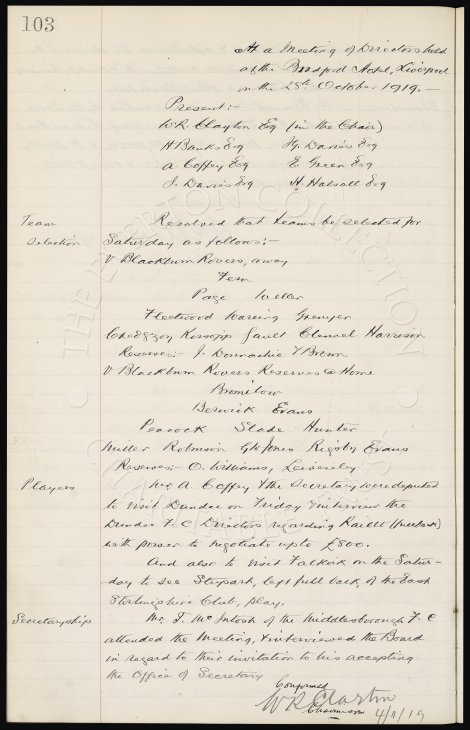 103
At a Meeting of Directors held
at the Bradford Hotel, Liverpool
on the 28th October 1919.-
Present:-
W.R. Clayton Esq (in the Chair)
H Banks Esq H. Davies Esq
A. Coffey Esq E. Green Esq
J. Davies Esq H. Halsall Esq
Team Resolved that teams be selected for
Selection Saturday as follows:-
V Blackburn Rovers, away
Fern
Page Weller
Fleetwood Wareing Grenyer
Kirsopp Gault Clennel Harrison
Reserves:- J. Donnachie T Brown
V Blackburn Rovers Reserves @ Home
Bromilow
Berwick Evans
Peacock Slade Hunter
Miller Robinson Jones Rigsby Evans
Reserves - O. Williams,
Players Mr A. Coffey & the Secretary were deputed
to visit Dundee on Friday & interview the
Dundee F.C Directors regarding Raitt (full back)
with power to negotiate up to £800.
And also to visit Falkirk on the Satur-
day to see left full back, of the East
Stirlingshire Club, play.
Secretaryship Mr. T. McIntosh of the Middlesborough F.C
attended the Meeting, & interviewed the Board
in regard to their invitation to his accepting
the Office of Secretary
Confirmed
W R Clayton
Chairman 4/11/19
THE EVERTON COLLECTION